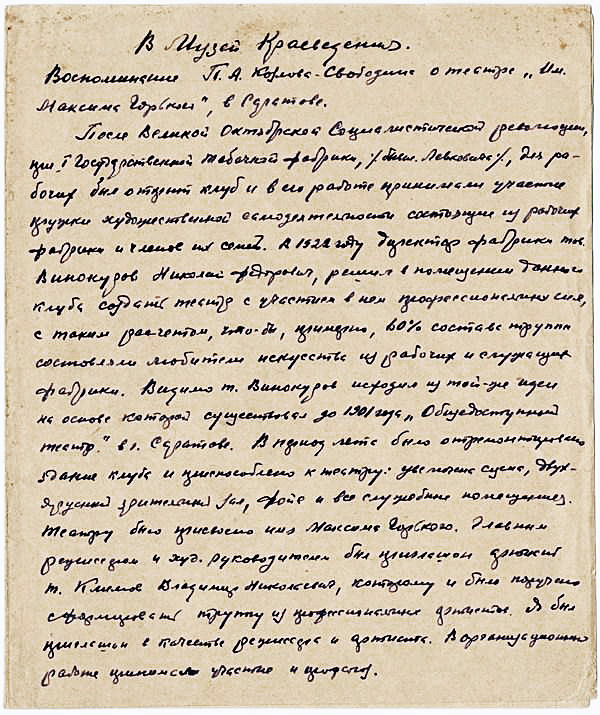 В Музей Краеведения.
Воспоминание П. А. Козлова-Свободина о театре „Им.
Максима Горького", в Саратове.
После Великой Октябрской Социалистической революции,
при I Государственной табачной фабрики, /бывш. Левковича/, для ра-
бочих был открыт клуб и в его работе принимали участие
кружки художественной самодеятельности состоящие из рабочих
фабрики и членов их семей. А 1922 году Директор фабрики тов.
Винокуров Николай Федорович, решил в помещении данного
клуба создать театр с участием в нем профессиональных сил,
с таким расчетом, что-бы, примерно, 60% состава труппы
составляли любители искусства из рабочих и служащих
фабрики. Видимо т. Винокуров исходил из той-же идеи
на основе которой существовал до 1901 года „Общедоступный
театр." в г. Саратове. В период лета было отремонтировано
здание клуба и приспособлено к театру: увеличена сцена, двух-
ярусный зрительный зал, фойе и все служебные помещения.
Театру было присвоено имя Максима Горького. Главным
режиссером и худ. руководителем был приглашен артист
т. Климов Владимир Николаевич, которому и было поручено
сформировать труппу из профессиональных артистов. Я был
приглашен в качестве режиссера и артиста. В организационной
работе принимал участие и